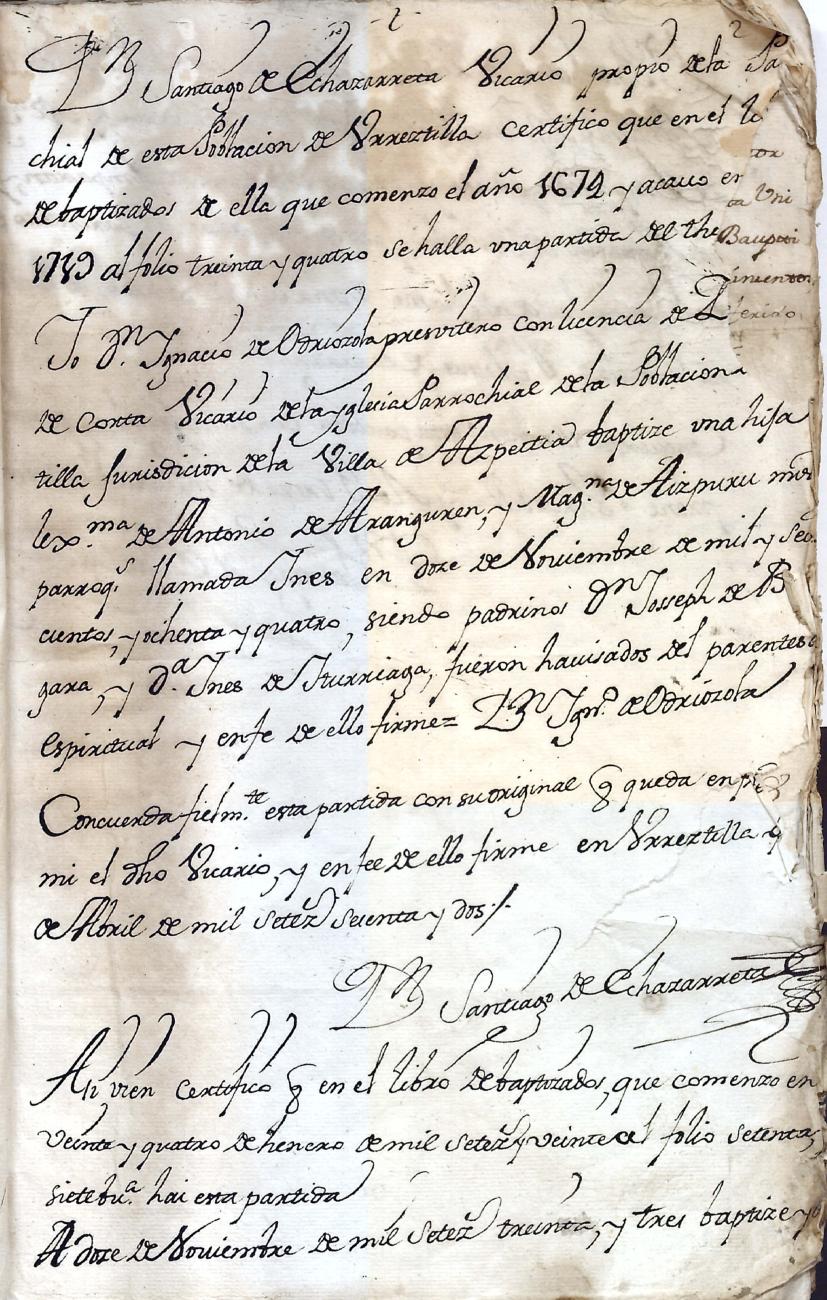 Dn Santiago de Echazarreta Vicario propio de la Pa
chial de esta Poblacion de Vrreztilla certifico que en el li
de baptizados de ella que comenzo el año 1672 y acavo en
1719 al folio treinta y quatro se halla vna partida del the
Yo Dn. Ygnacio de Odriozola presvitero con licencia de D
de Corta Vicario de la yglecia Parrochial de la Poblacion
tilla Jurisdicion de la Villa de Azpeitia baptize vna hija
lexma. de Antonio de Aranguren, y Magna. de Aizpuru mis
parroqs. llamada Ines en doze de Noviembre de mil y seis
cientos, y ochenta y quatro, siendo padrinos Dn Josseph de B
gara, y Da. Ines de Yturriaga, fueron havisados del parentesco
espiritual y en fe de ello firme = Dn Ygno. de Odriozola
Concuerda fielmte. esta partida con su original q queda en
mi el dho Vicario, y en fee de ello firme en Vrreztilla
de Abril de mil setezs sesenta y dos./.
Dn Santiago de Echazarreta
Asi vien certifico q en el libro de baptizados, que comenzo en
veinte y quatro de henero de mil setezs y veinte al folio setenta,
siete bua. hai esta partida
A doze de Noviembre de mil setezs treinta, y tres baptize yo